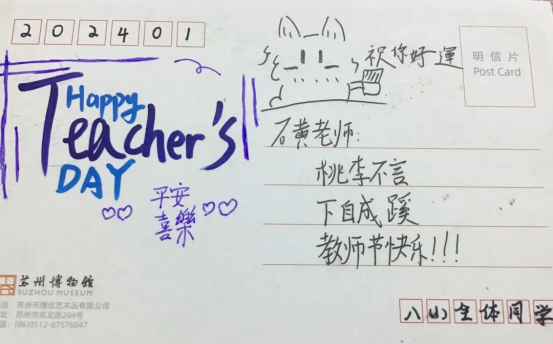 202401
祝你好運
明信片
Post Card
Happy
Teacher's
DAY
平安
喜樂
石黄老师:
桃李不言
下自成蹊
教师节快乐!!!
苏州博物馆
SUZHOU MUSEUM
品: 苏州市博欣艺术品有限公司
址: 苏州市东北街204号
话: (86)0512-67576047
八(4)全体同学